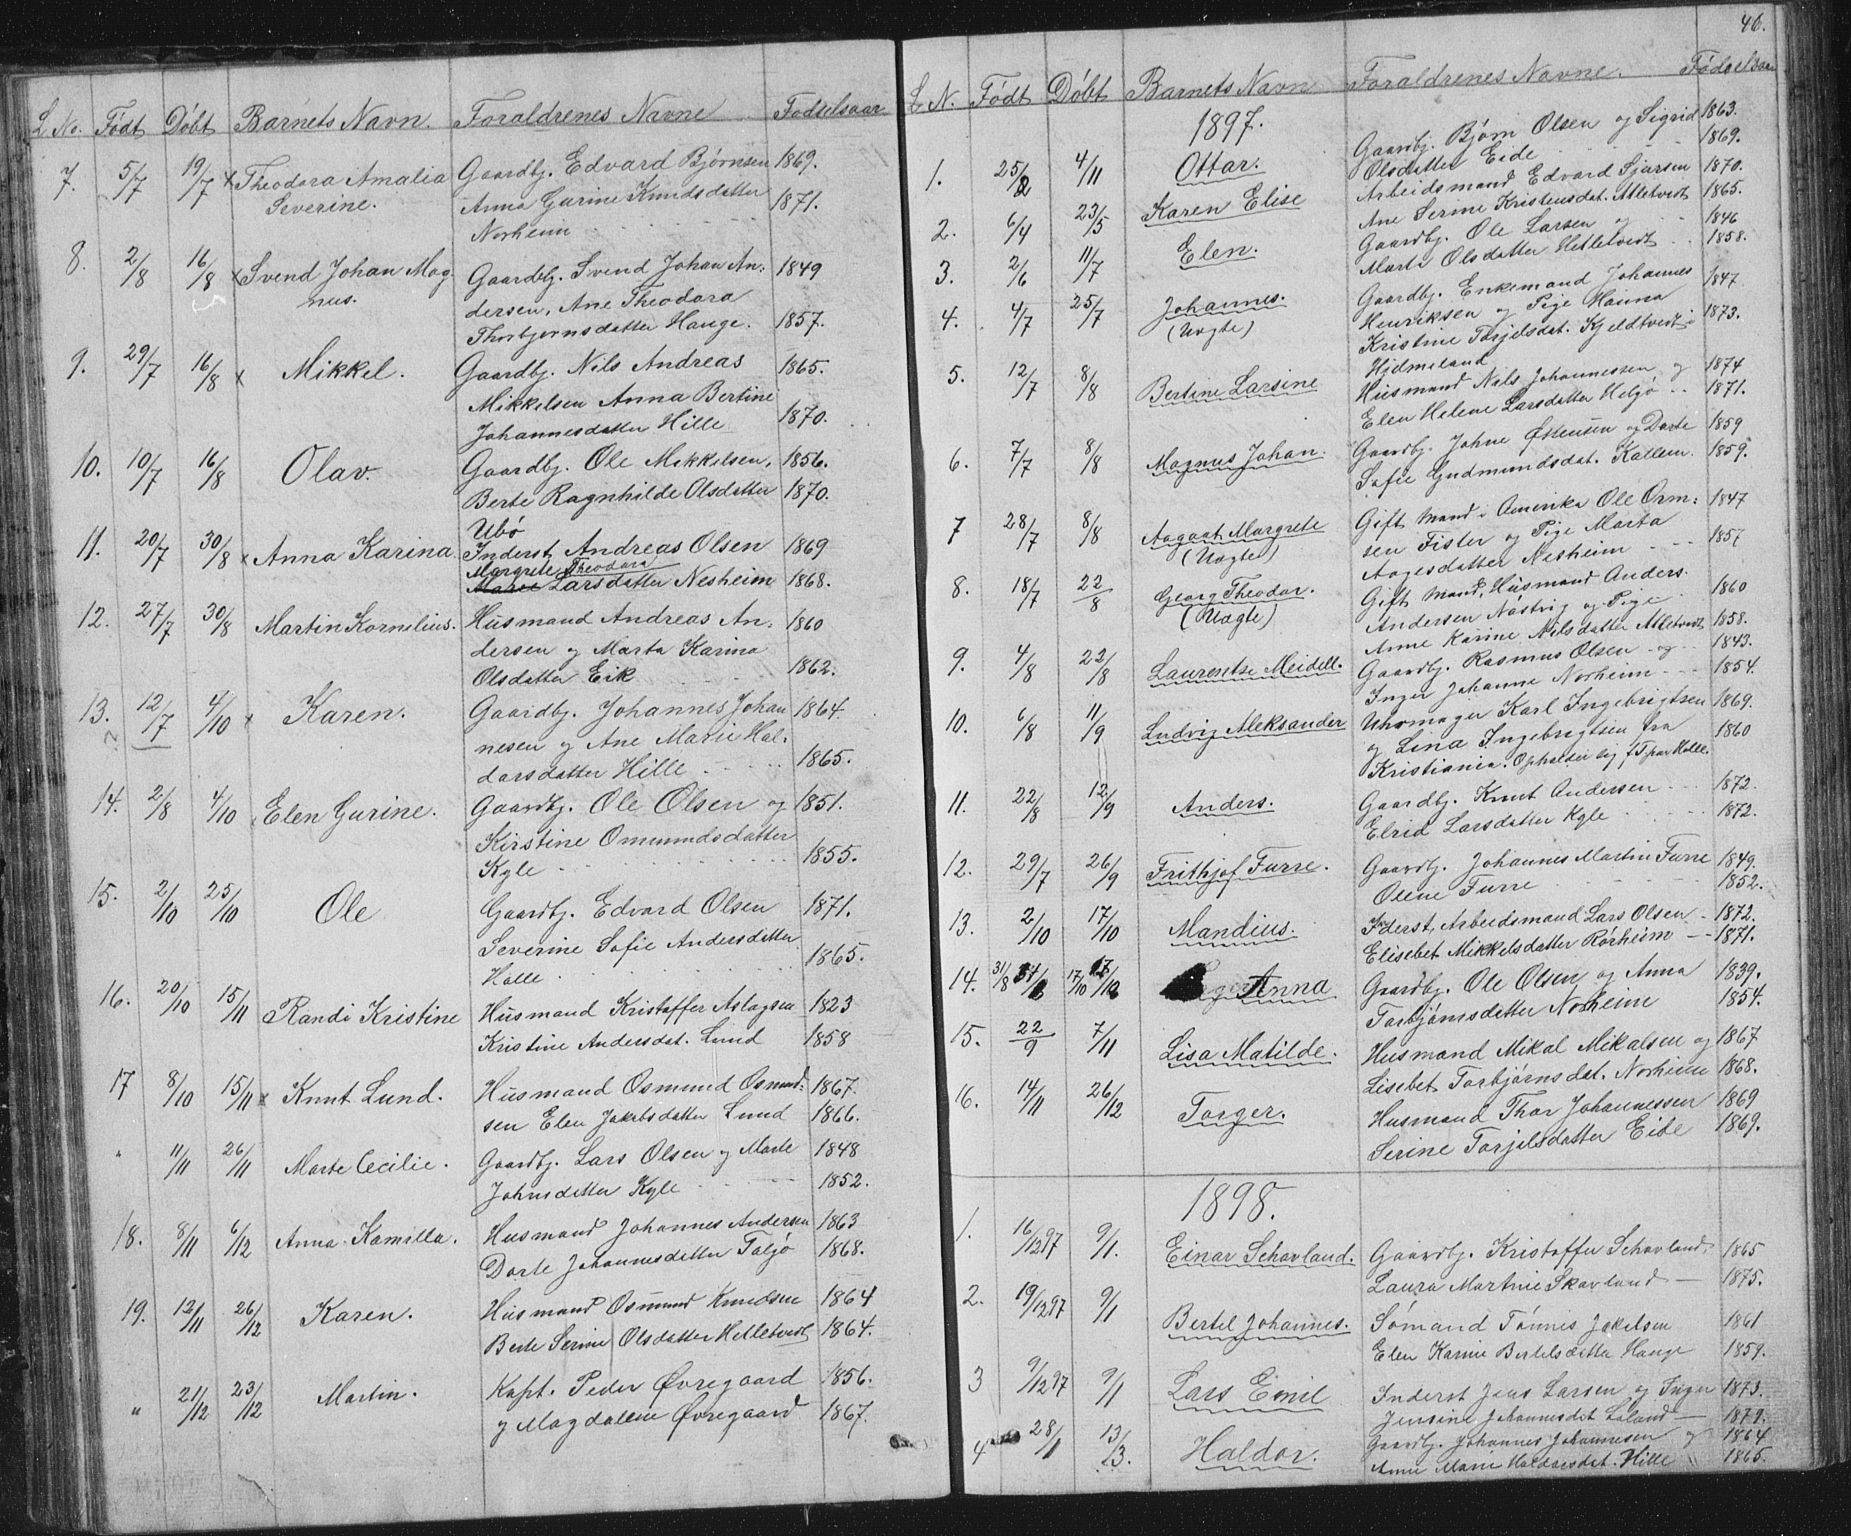 L. No. Født Døbt Barnets Navn. Foraldrenes Navne Fødselsaar
7. 5/7 19/7 x Theodora Amalia Gaardbj. Edvard Bjørnsen 1869.
Severine. Anna Gurine Knudsdatter 1871.
Norheim
8. 2/8 16/8 x Svend Johan Mag- Gaardbj. Svend Johan An: 1849
nus. dersen, Ane Theodora
Thorbjørnsdatter Hauge. 1857.
9. 29/7 16/8 x Mikkel. Gaardbj. Nils Andreas 1865.
Mikkelsen Anna Bertine
Johannesdatter Hille 1870.
10. 10/7 16/8 Olav. Gaardbj. Ole Mikkelsen, 1856.
Berte Ragnhilde Olsdatter 1870.
Ubø
11. 20/7 30/8 x Anna Karina Inderst Andreas Olsen 1869
Margrete Theodora
Larsdatter Nesheim 1868.
12. 27/7 30/8 Martin Kornelius. Husmand Andreas An. 1860
dersen og Marta Karina
Olsdatter Eik 1862.
13. 12/7 4/10 x Karen. Gaardbj. Johannes Johan 1864.
nesen og Ane Marie Hal.
dorsdatter Hille 1865.
14. 2/8 4/10 Elen Gurine. Gaardbj. Ole Olsen og 1851.
Kirstine Omundsdatter
Kyle 1855.
15. 2/10 25/10 Ole Gaardbj. Edvard Olsen 1871.
Severine Sofie Andersdatter
Halle 1865.
16. 20/10 15/11 Randi Kristine Husmand Kristoffer Aslagsen 1823
Kristine Andersdat. Lund 1858
17 8/10 15/11 x Knut Lund. Husmand Osmund Osmund: 1867.
sen Elen Jakobsdatter Lund 1866.
" 11/11 26/11 Marte Cecilie. Gaardbj. Lars Olsen og Marte 1848
Johnsdatter Kyle 1852.
18. 8/11 6/12 Anna Kamilla. Husmand Johannes Andersen 1863
Dorte Johannesdatter Taljø 1868.
19. 12/11 26/12 Karen. Husmand Osmund Knudsen 1864
Berte Serine Olsdatter Helletvedt 1864.
" 21/12 23/12 Martin. Kapt. Peder Øvregaard 1856.
og Magdalene Øvregaard 1867.
46.
L. N. Født Døbt Barnets Navn Foraldrenes Navne. Fødselsaar
1897.
1. 25/2 4/11 Ottar. Gaardbj. Bjørn Olsen og Sigrid 1863.
Olsdatter Eide 1869.
2. 6/4 23/5 Karen Elise Arbeidsmand Edvard Sjursen 1870.
Ane Serine Kristensdat. Alletvedt 1865.
3. 2/6 11/7 Elen. Gaardbj. Ole Larsen og 1846
Marti Olsdatter Hetletvedt 1858.
4. 4/7 25/7 Johannes. Gaardbj. Enkemand Johannes 1847
(Uægte) Henriksen og Pige Hanna
Kristine Torjelsdat. Kjeldtvedt 1873.
Hjelmeland
5. 12/7 8/8 Bertine Larsine Husmand Nils Johannessen og 1874
Elen Helene Larsdatter Heljø 1871.
6. 7/7 8/8 Magnus Johan. Gaardbj. Johne Østensen og Dorte 1859
Sofie Gudmundsdat. Kallem. 1859.
7 28/7 8/8 Aagaat Margrete Gift Mand i Amerika Ole Orm: 1847
(Uægte) sen Fister og Pige Marta
Aagesdatter Nesheim 1857
8. 18/7 22/8 Georg Theodor. Gift Mand, Husmand Anders.
(Uægte) Andersen Nåstvig og Pige 1860
Anne Karine Nilsdatter Alletvedt 1858.
9. 4/8 22/8 Laurentse Meidell. Gaardbj. Rasmus Olsen og 1843.
Inger Johanne Norheim 1854.
10. 6/8 11/9 Ludvig Aleksander Uhrmager Karl Ingebrigtsen 1869.
og Lina Ingebrigtsen fra 1860
Kristiania. Opholder sig f T paa Halle.
11. 22/8 12/9 Anders. Gaardbj. Knut Andersen 1872.
Elrid Larsdatter Kyle 1872.
12. 29/7 26/9 Frithjof Furre. Gaardbj. Johannes Martin Furre 1849.
Olene Furre 1852.
13. 2/10 17/10 Mandius. Inderst, Arbeidsmand Lars Olsen 1872.
Elisebet Mikkelsdatter Rørheim 1871.
14. 31/8 17/10 Anna Gaardbj. Ole Olsen og Anna 1839.
Torbjørnsdatter Norheim 1854.
15. 22/9 7/11 Lisa Matilde. Husmand Mikal Mikalsen og 1867
Lisebet Torbjørnsdat. Norheim 1868.
16. 14/11 26/12 Torger. Husmand Thor Johannessen 1869
Serine Torjelsdatter Eide 1869.
1898.
1. 16/12 97 9/1. Einar Schavland. Gaardbj. Kristoffer Schavland. 1865
Laura Martine Skavland 1875.
2. 19/12 97 9/1 Bertel Johannes. Sømand Tønnis Jakilsen 1861
Elen Karine Bertelsdatter Hauge 1859.
3 9/12 97 9/1 Lars Emil Inderst Jens Larsen og Inger 1873.
Jensine Johannesdat Laland 1879.
4 28/1 13/3. Haldor. Gaardbj. Johannes Johannesen og 1864
Anne Marie Haldorsdat. Hille 1865.